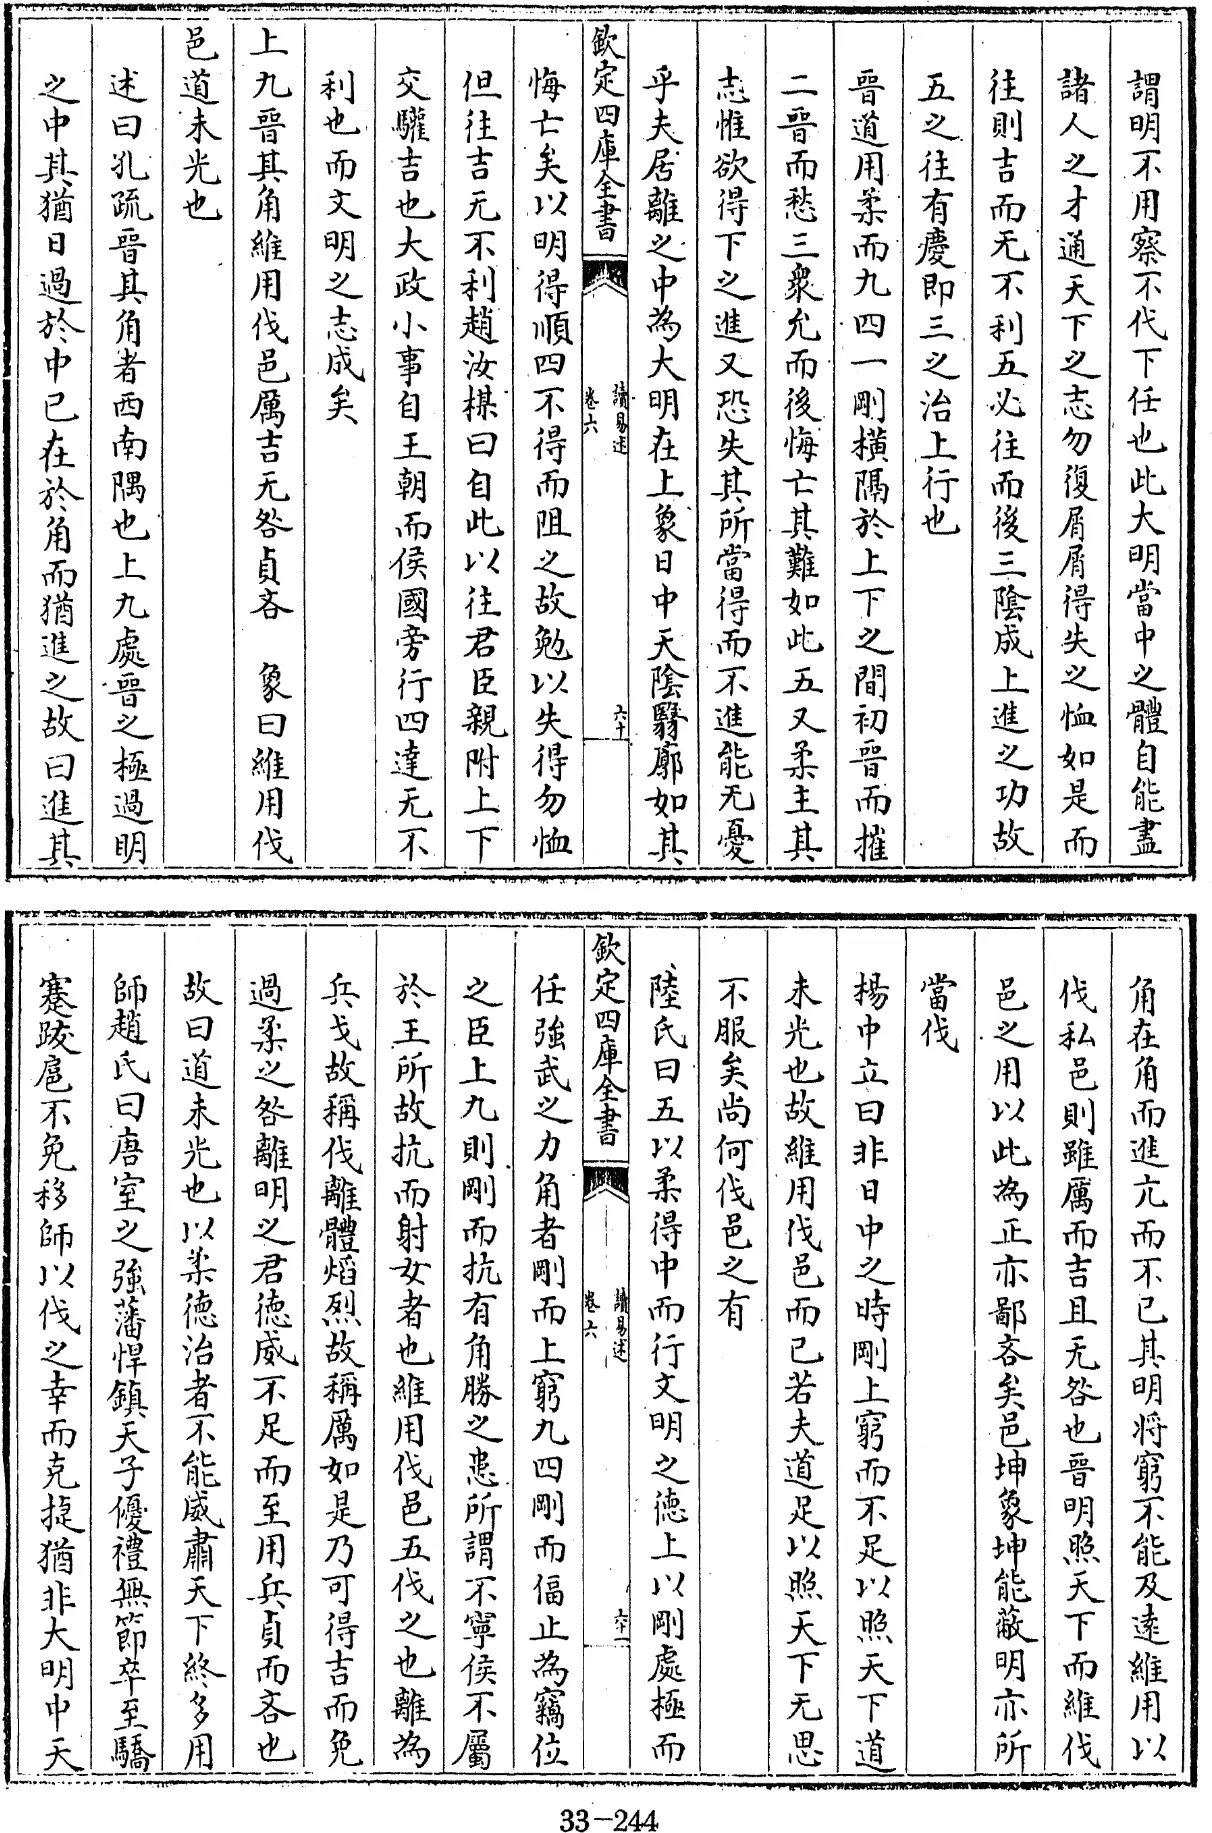 謂明不用察不代下任也此大明當中之體自能盡
諸人之才通天下之志勿復屑屑得失之恤如是而
往則吉而无不利五必往而後三陰成上進之功故
五之往有慶即三之治上行也
晉道用柔而九四一剛橫隔於上下之間初晉而摧
二晉而愁三衆允而後悔亡其難如此五又柔主其
志惟欲得下之進又恐失其所當得而不進能无憂
乎夫居離之中為大明在上象日中天陰翳廓如其
欽定四庫全書
讀易述
卷六
六十
悔亡矣以明得順四不得而阻之故勉以失得勿恤
但往吉无不利趙汝楳曰自此以往君臣親附上下
交驩吉也大政小事自王朝而侯國旁行四達无不
利也而文明之志成矣
上九晉其角維用伐邑厲吉无咎貞吝 象曰維用伐
邑道未光也
述曰孔疏晉其角者西南隅也上九處晉之極過明
之中其猶日過於中已在於角而猶進之故曰進其
角在角而進亢而不已其明將窮不能及遠維用以
伐私邑則雖厲而吉且无咎也晉明照天下而維伐
邑之用以此為正亦鄙吝矣邑坤象坤能蔽明亦所
當伐
楊中立曰非日中之時剛上窮而不足以照天下道
未光也故維用伐邑而已若夫道足以照天下无思
不服矣尚何伐邑之有
陸氏曰五以柔得中而行文明之德上以剛處極而
欽定四庫全書
讀易述
卷六
六十一
任強武之力角者剛而上窮九四剛而偪止為竊位
之臣上九則剛而抗有角勝之患所謂不寧侯不屬
於王所故抗而射女者也維用伐邑五伐之也離為
兵戈故稱伐離體熖烈故稱厲如是乃可得吉而免
過柔之咎離明之君德威不足而至用兵貞而吝也
故曰道未光也以柔德治者不能威肅天下終多用
師趙氏曰唐室之強藩悍鎮天子優禮無節卒至驕
蹇跋扈不免移師以伐之幸而克捷猶非大明中天
33-244